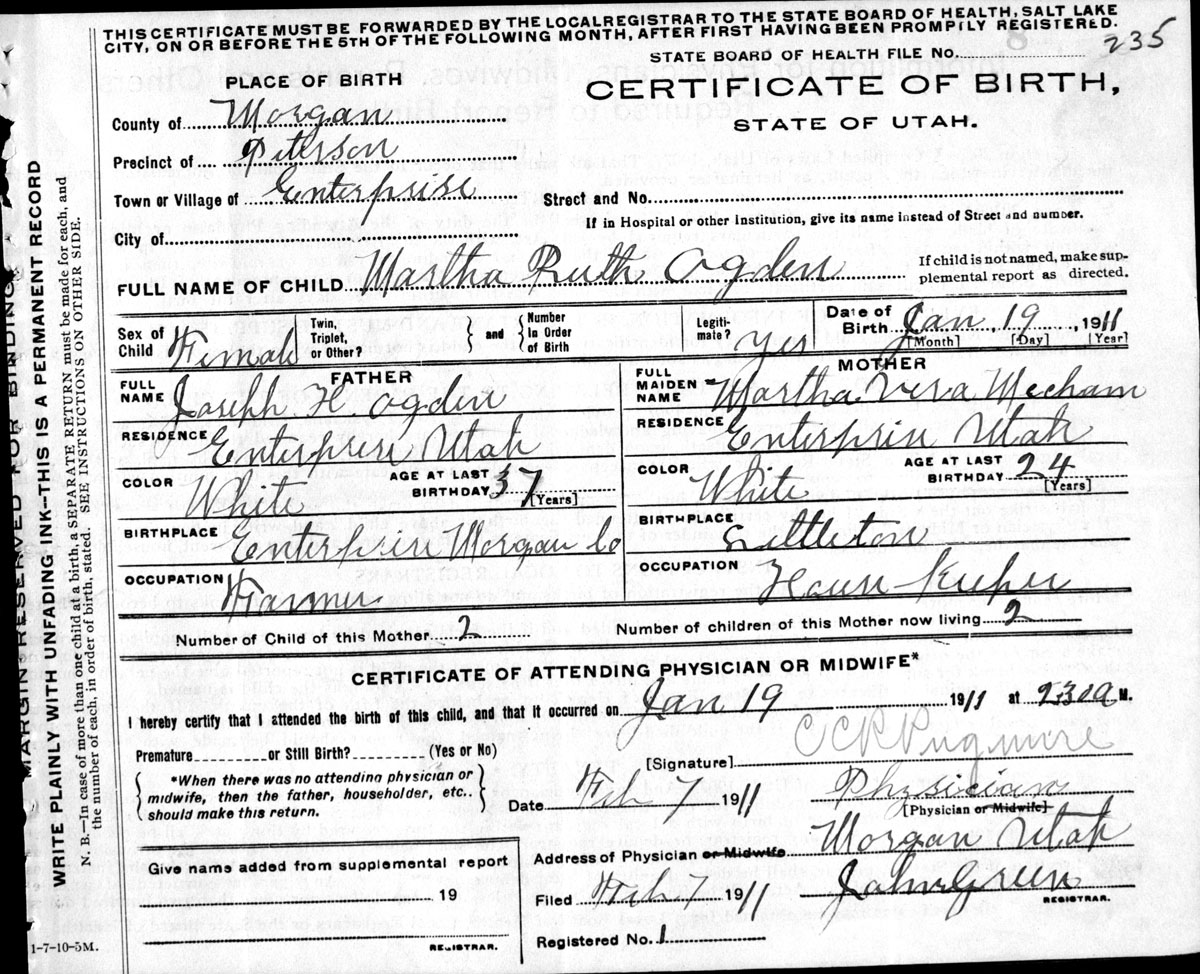 THIS CERTIFICATE MUST BE FORWARDED BY THE LOCALREGISTRAR TO THE STATE BOARD OF HEALTH, SALT LAKE
CITY, ON OR BEFORE THE 5TH OF THE FOLLOWING MONTH, AFTER FIRST HAVING BEEN PROMPILY REGISTERED.
235
STATE BOARD OF HEALTH FILE NO.
PLACE OF BIRTH
CERTIFICATE OF BIRTH,
STATE OF UTAH.
County of Morgan
Precinct of Peterson
Town or Village of Enterprise
Street and No.
If in Hospital or other Institution, give its name instead of Street and number.
City of
FULL NAME OF CHILD Martha Ruth Ogden
If child is not named, make sup-
plemental report as directed.
Sex of Child Female
Twin, Triplet, or Other?
and
Number In Order of Birth
Legiti-mate? Yes
Date of Birth Jan 19, 1911
[Month] [Day] [Year]
FATHER
FULL NAME Joseph H. Ogden
RESIDENCE Enterprise Utah
COLOR White AGE AT LAST BIRTHDAY 37 [Years]
BIRTHPLACE Enterprise Morgan Co
OCCUPATION Farmer
MOTHER
FULL MAIDEN NAME Martha Vera Mecham
RESIDENCE Enterprise Utah
COLOR White AGE AT LAST BIRTHDAY 24 [Years]
BIRTHPLACE Littleton
OCCUPATION House Keeper
Number of Child of this Mother 2 Number of children of this Mother now living 2
CERTIFICATE OF ATTENDING PHYSICIAN OR MIDWIFE*
I hereby certify that I attended the birth of this child, and that it occurred on Jan 19 1911 at 230a M.
Premature or Still Birth? (Yes or No)
[Signature]
*When there was no attending physician or
midwife, then the father, householder, etc..
should make this return.
Date Feb 7 1911 Physician
[Physician or Midwife]
Address of Physician or Midwife Morgan Utah
Filed Feb 7 1911 John Green
REGISTRAR.
Registered No. 1
Give name added from supplemental report
19
REGISTRAR.
1-7-10-5M.
MARGIN RESERVED FOR BINDING
WRITE PLAINLY WITH UNFADING INK—THIS IS A PERMANENT RECORD
N. B.—In case of more than one child at a birth, a SEPARATE RETURN must be made for each, and
the number of each, in order of birth, stated. SEE INSTRUCTIONS ON OTHER SIDE.